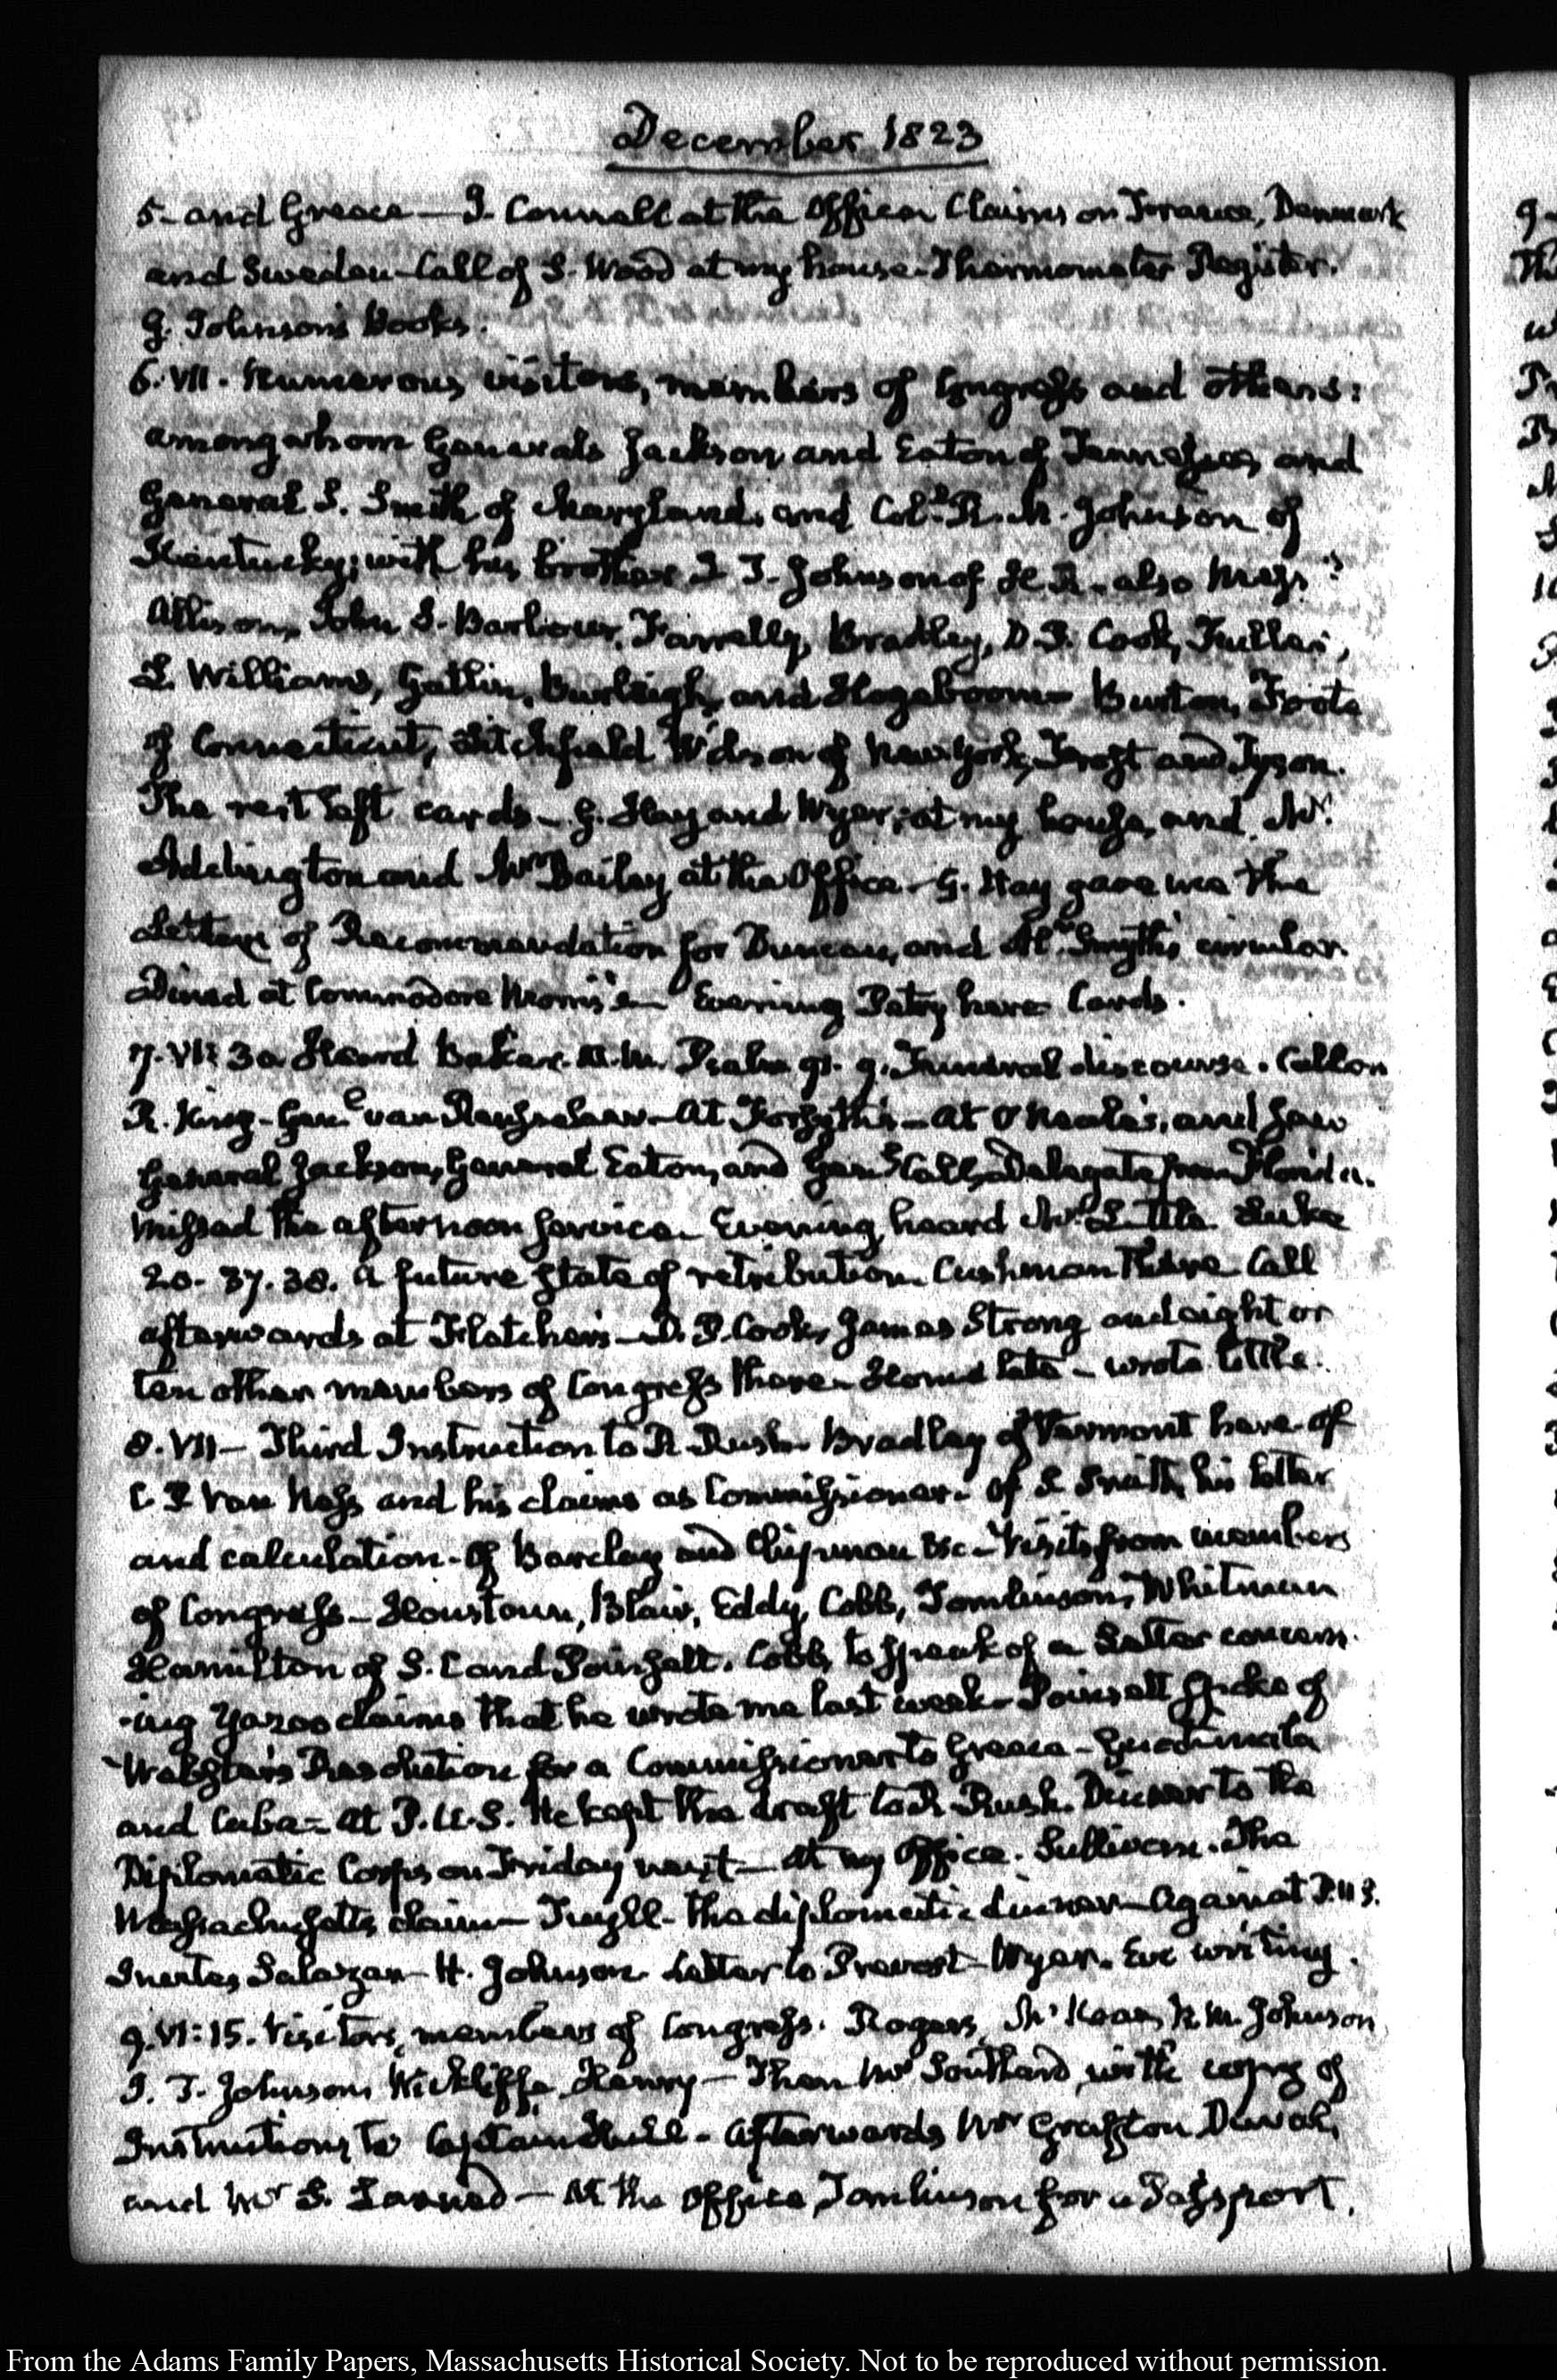 December 1823
5- and Greece — J. Connell at the Office Claims on France, Denmark
and Sweden - Call of S. Wood at my house. Thermometer Register.
G. Johnson's Books.
6. VII. Numerous visitors, members of Congress and others:
among whom Generals Jackson and Eaton of Tennessee, and
General S. Smith of Maryland, and Coll. R. M. Johnson of
Kentucky; with his brother J T. Johnson of H. R. - also Messrs
Allison, John S. Barbour, Farrelly, Bradley, D. P. Cook, Fuller,
L Williams, Gatlin, Burleigh, and Hogeboom - Burton, Foote
of Connecticut, Litchfield Wilson of New York, Frost and Tyson.
The rest left cards - G. Hay and Wyer; at my house, and Mr
Addington and Mr Bailey at the Office - G. Hay gave me the
Letters of Recommendation for Duncan, and Al. Smyth's circular.
Dined at Commodore Morris's - Evening Party here Cards.
7. VII: 30 Heard Baker. A.M. Psalm 91. 9. Funeral discourse. Call on
R. King - Genl van Rensselaer - At Forsyth's - at O'Neale's, and saw
General Jackson, General Eaton, and Genl Call, Delegate from Florida.
Missed the afternoon service - Evening, heard Mr Little Luke
20. 37. 38. A future state of retribution. Cushman there Call
afterwards at Fletcher's - D. P. Cook, James Strong and eight or
ten other members of Congress there - Home late - wrote little.
8. VII - Third Instruction to R. Rush - Bradley of Vermont here - of
C. P Van Ness and his claims as Commissioner - Of S Smith, his letter
and calculation - Of Barclay and Chipman &c - Visits from members
of Congress - Houstoun, Blair, Eddy, Cobb, Tomlinson, Whitman
Hamilton of S. C and Poinsett. Cobb, to speak of a Letter concern-
-ing Yazoo claims that he wrote me last week - Poinsett spoke of
Webster's Resolution for a Commissioner to Greece - Guatimala
and Cuba - At P. U. S. He kept the draft to R Rush. Dinner to the
Diplomatic Corps on Friday next - At my Office. Sullivan. The
Massachusetts claim - Tuyll - the diplomatic dinner - Against P. U S.
Salazar - H. Johnson Letter to Prevost - Wyer. Eve writing.
9. VI: 15. Visitors, members of Congress. Rogers, McKean, R. M. Johnson
J. T. Johnson, Wickliffe, Henry - Then Mr Southard, with copy of
Instructions to Captain Hull - Afterwards Mr Grafton Duval,
and Mr S. Larned - At the Office, Tomlinson for a Passport.
From the Adams Family Papers, Massachusetts Historical Society. Not to be reproduced without permission.